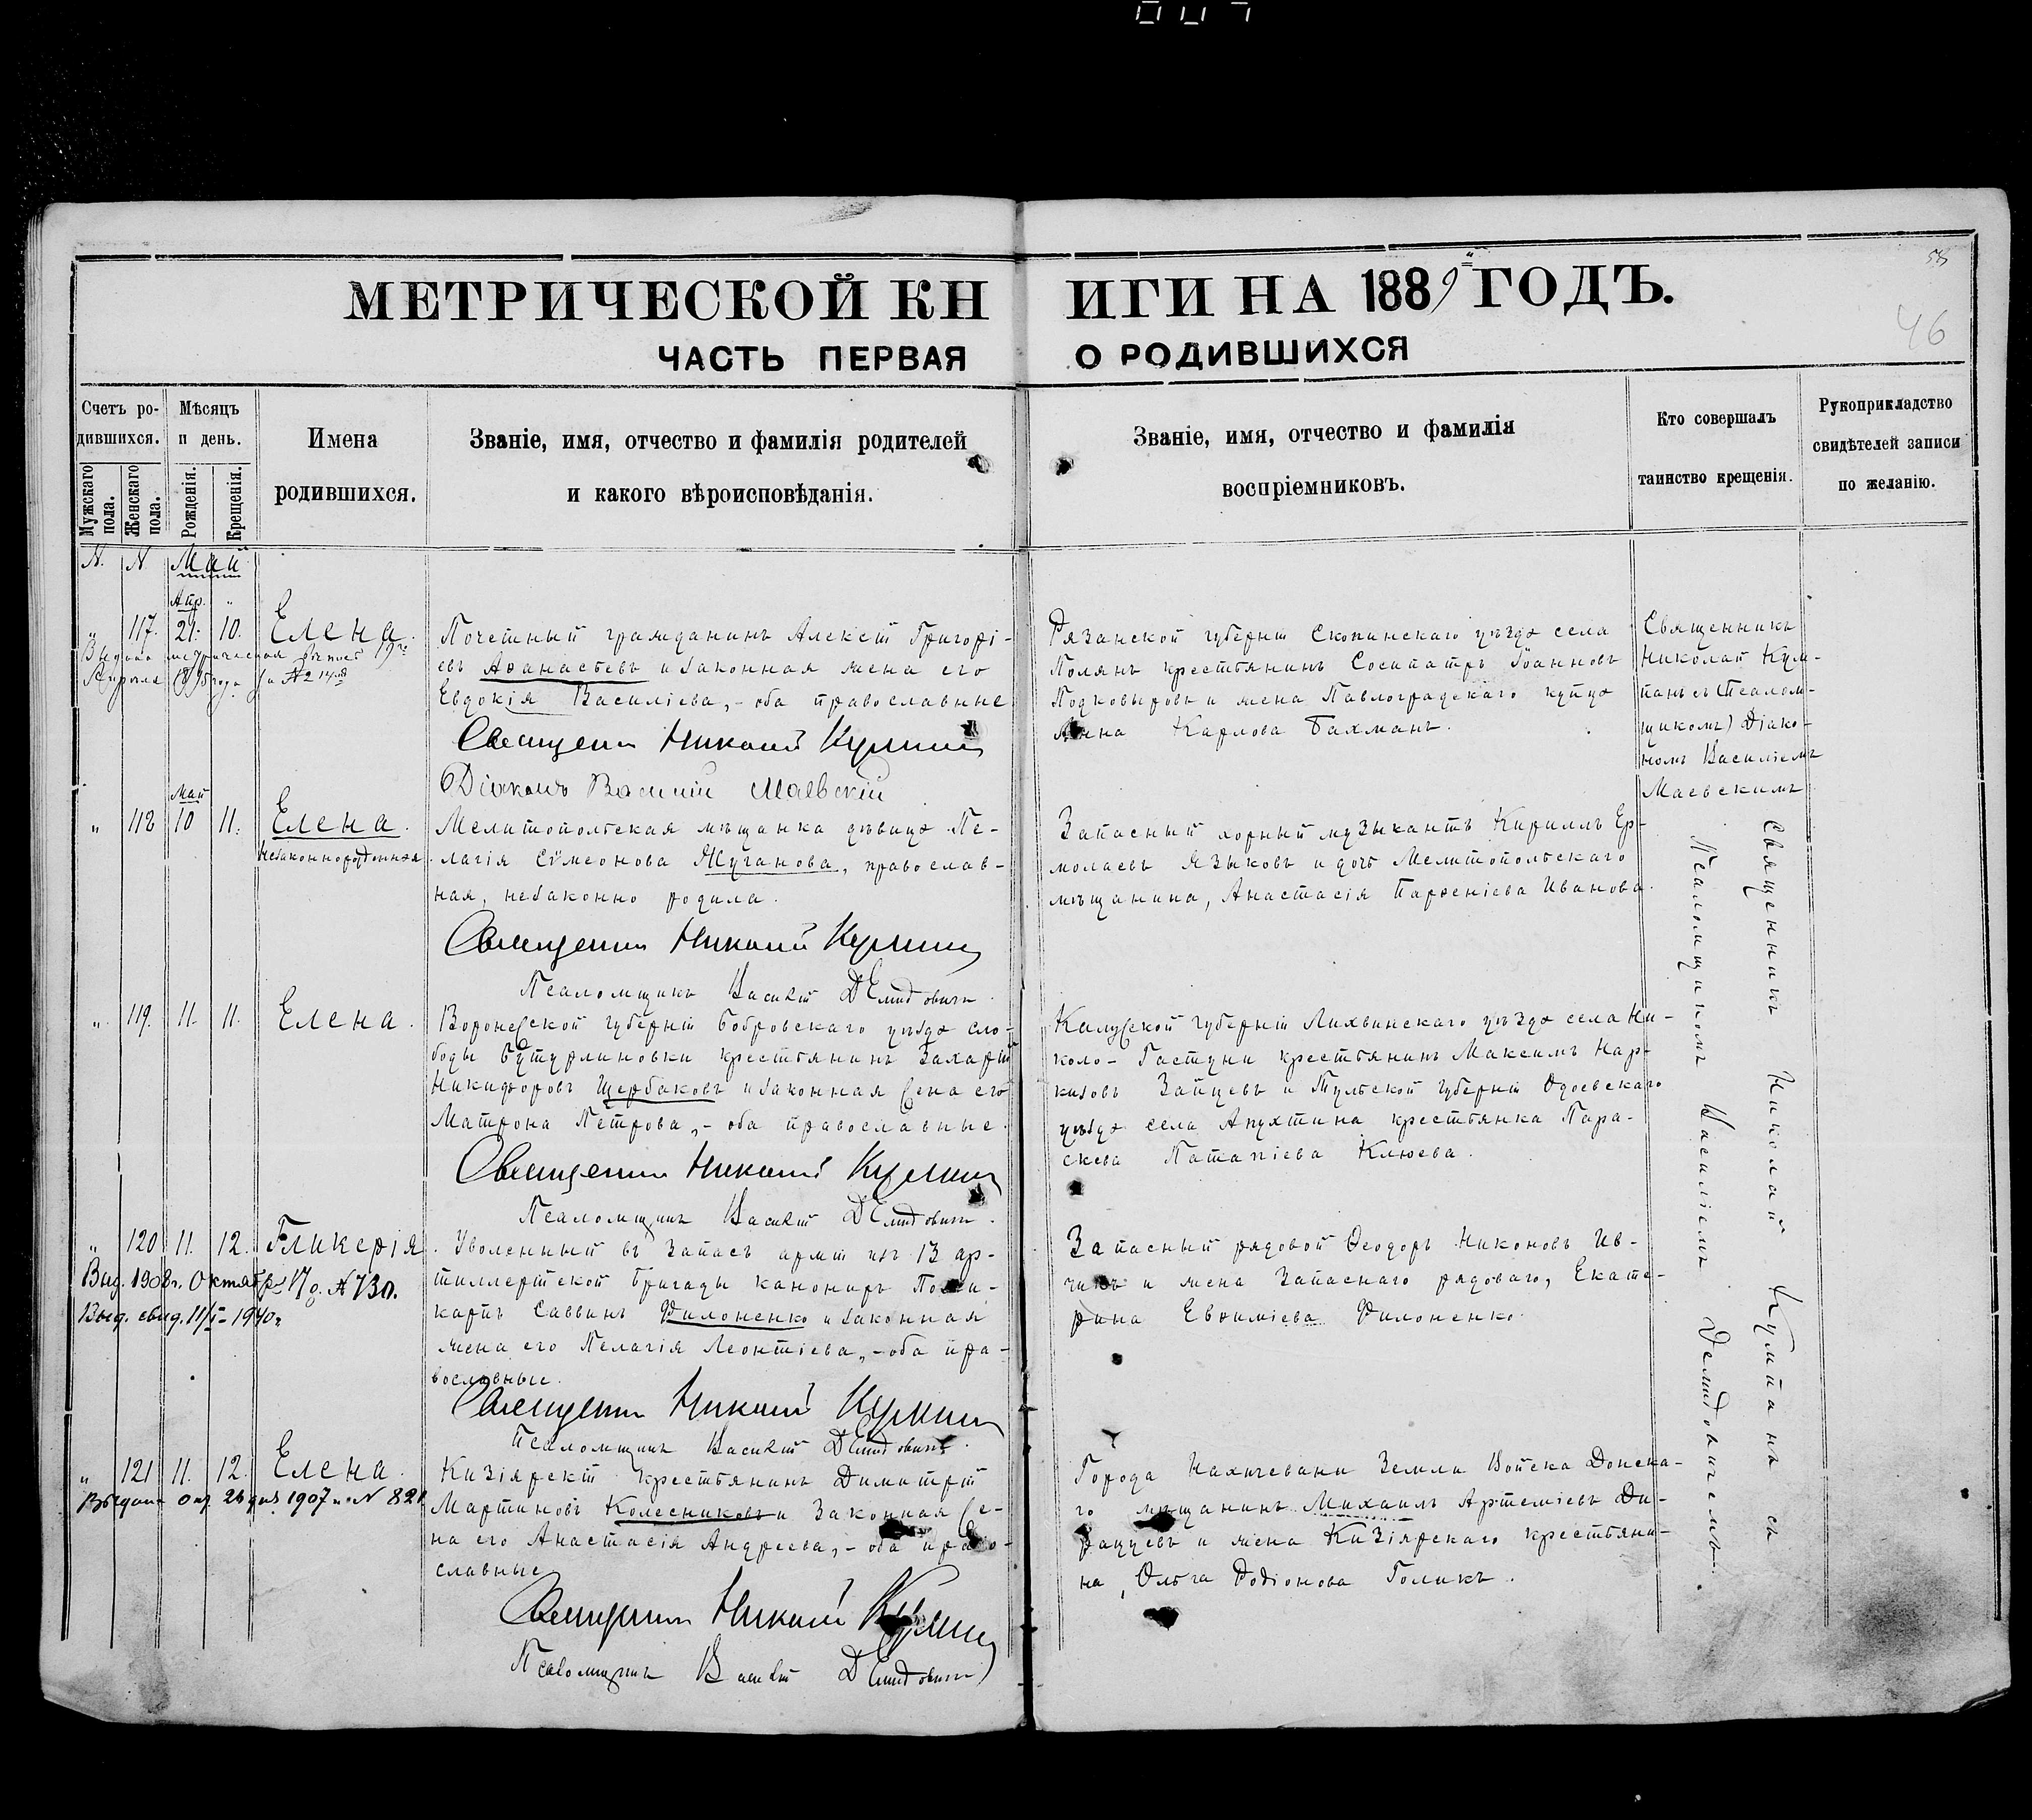 007
58
46
МЕТРИЧЕСКОЙ КНИГИ НА 1889 ГОДЪ.
ЧАСТЬ ПЕРВАЯ О РОДИВШИХСЯ
Счетъ ро-
дившихся.
Мужскаго пола.
Женскаго пола.
Мѣсяцъ
и день.
Рожденія.
Крещенія.
Имена
родившихся.
Званіе, имя, отчество и фамилія родителей
и какого вѣроисповѣданія.
Званіе, имя, отчество и фамилія
воспріемниковъ.
Кто совершалъ
таинство крещенія.
Рукоприкладство
свидѣтелей записи
по желанію.
N. N Май
Апр. "
" 117. 21. 10. Елена.
Почетный гражданинъ Алексѣй Григорі-
евъ Аѳанасьевъ и законная жена его
Евдокія Василіева, - оба православные
Священ Николай
Діаконъ Василій Маевскій
Рязанской губерніи Скопинскаго уѣзда села
Полянъ крестьянинъ Сосипатръ Іоанновъ
Подковыровъ и жена Павлоградскаго купца
Анна Карлова Бахманъ.
Священникъ
Николай Кум-
панъ съ (псалом-
щикомъ) Діако-
номъ Василіемъ
Маевскимъ
Май
" 118 10 11. Елена.
Незаконнорожденная.
Мелитопольская мѣщанка дѣвица Пе-
лагія Сѵмеонова Жуганова, православ-
ная, незаконно родила.
Священ Николай
Псаломщикъ Василій Демидовичъ
Запасный хорный музыкантъ Кириллъ Ер-
молаевъ Языковъ и дочь Мелитопольскаго
мѣщанина, Анастасія Парѳеніева Иванова.
" 119. 11. 11. Елена.
Воронежской губерніи Бобровскаго уѣзда сло-
боды Бутурлиновки крестьянинъ Захарій
Никифоровъ Щербаковъ и законная жена его
Матрона Петрова, - оба православные.
Священ Николай
Псаломщикъ Василій Демидовичъ.
Калужской губерніи Лихвинскаго уѣзда села Ни-
коло-Гастуни крестьянинъ Максимъ Нар-
кизовъ Зайцевъ и Тульской губерніи Одоевскаго
уѣзда села Апухтина крестьянка Пара-
скева Патапіева Клюева.
" 120 11. 12. Гликерія.
Выд. 1908 г. Октабр 17 д. № 730.
Выд. свид. 11/I - 1940 г
Уволенный въ запасъ арміи изъ 13 ар-
тиллерійской бригады канониръ Поли-
карпъ Саввинъ Филоненко и законная
жена его Пелагія Леонтіева, - оба пра-
вославные.
Священ Николай
Псаломщикъ Василій Демидовичъ.
Запасный рядовой Ѳеодоръ Никоновъ Ив-
чикъ и жена запаснаго рядоваго, Екате-
рина Евѳиміева Филоненко.
" 121 11. 12. Елена.
1907 № 821
Кизіярскій крестьянинъ Димитрій
Мартиновъ Колесниковъ и законная же-
на его Анастасія Андреева, - оба право-
славные
Священ Николай
Псаломщикъ Василій Демидовичъ
Города Нахичевани Земли Войска Донска-
го мѣщанинъ Михаилъ Артеміевъ Ди-
ранцевъ и жена Кизіярскаго крестьяни-
на, Ольга Родіонова Голикъ.
Священникъ Николай Кумпанъ съ
Псаломщикомъ Василіемъ Демидовичемъ.